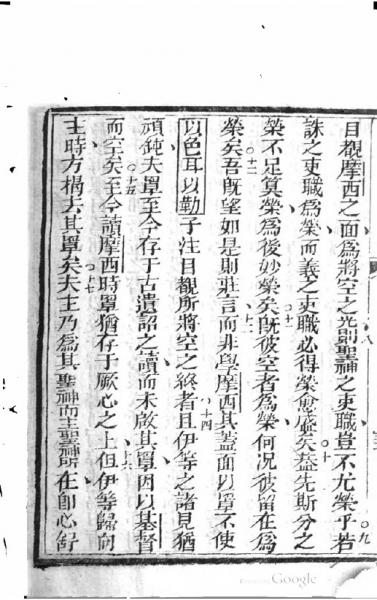 目觀摩西之面爲將空之光則聖神之吏職豈不尤榮乎若
誅之吏職爲榮而義之吏職必得榮愈盛矣蓋先斯分之
榮不足算榮爲後妙榮矣旣彼空者爲榮何况彼留在爲
榮矣吾旣望如是則莊言而非學摩西其蓋面以罩不使
以色耳以勒子注目觀所將空之終者且伊等之諸見猶
頑鈍夫罩至今存于古遺詔之讀而未啟其罩因以基督
而空矣至今讀摩西時罩猶存于厥心之上但伊等歸向
主時方揭去其罩矣夫主乃爲其聖神而主聖神所在卽心舒
Google